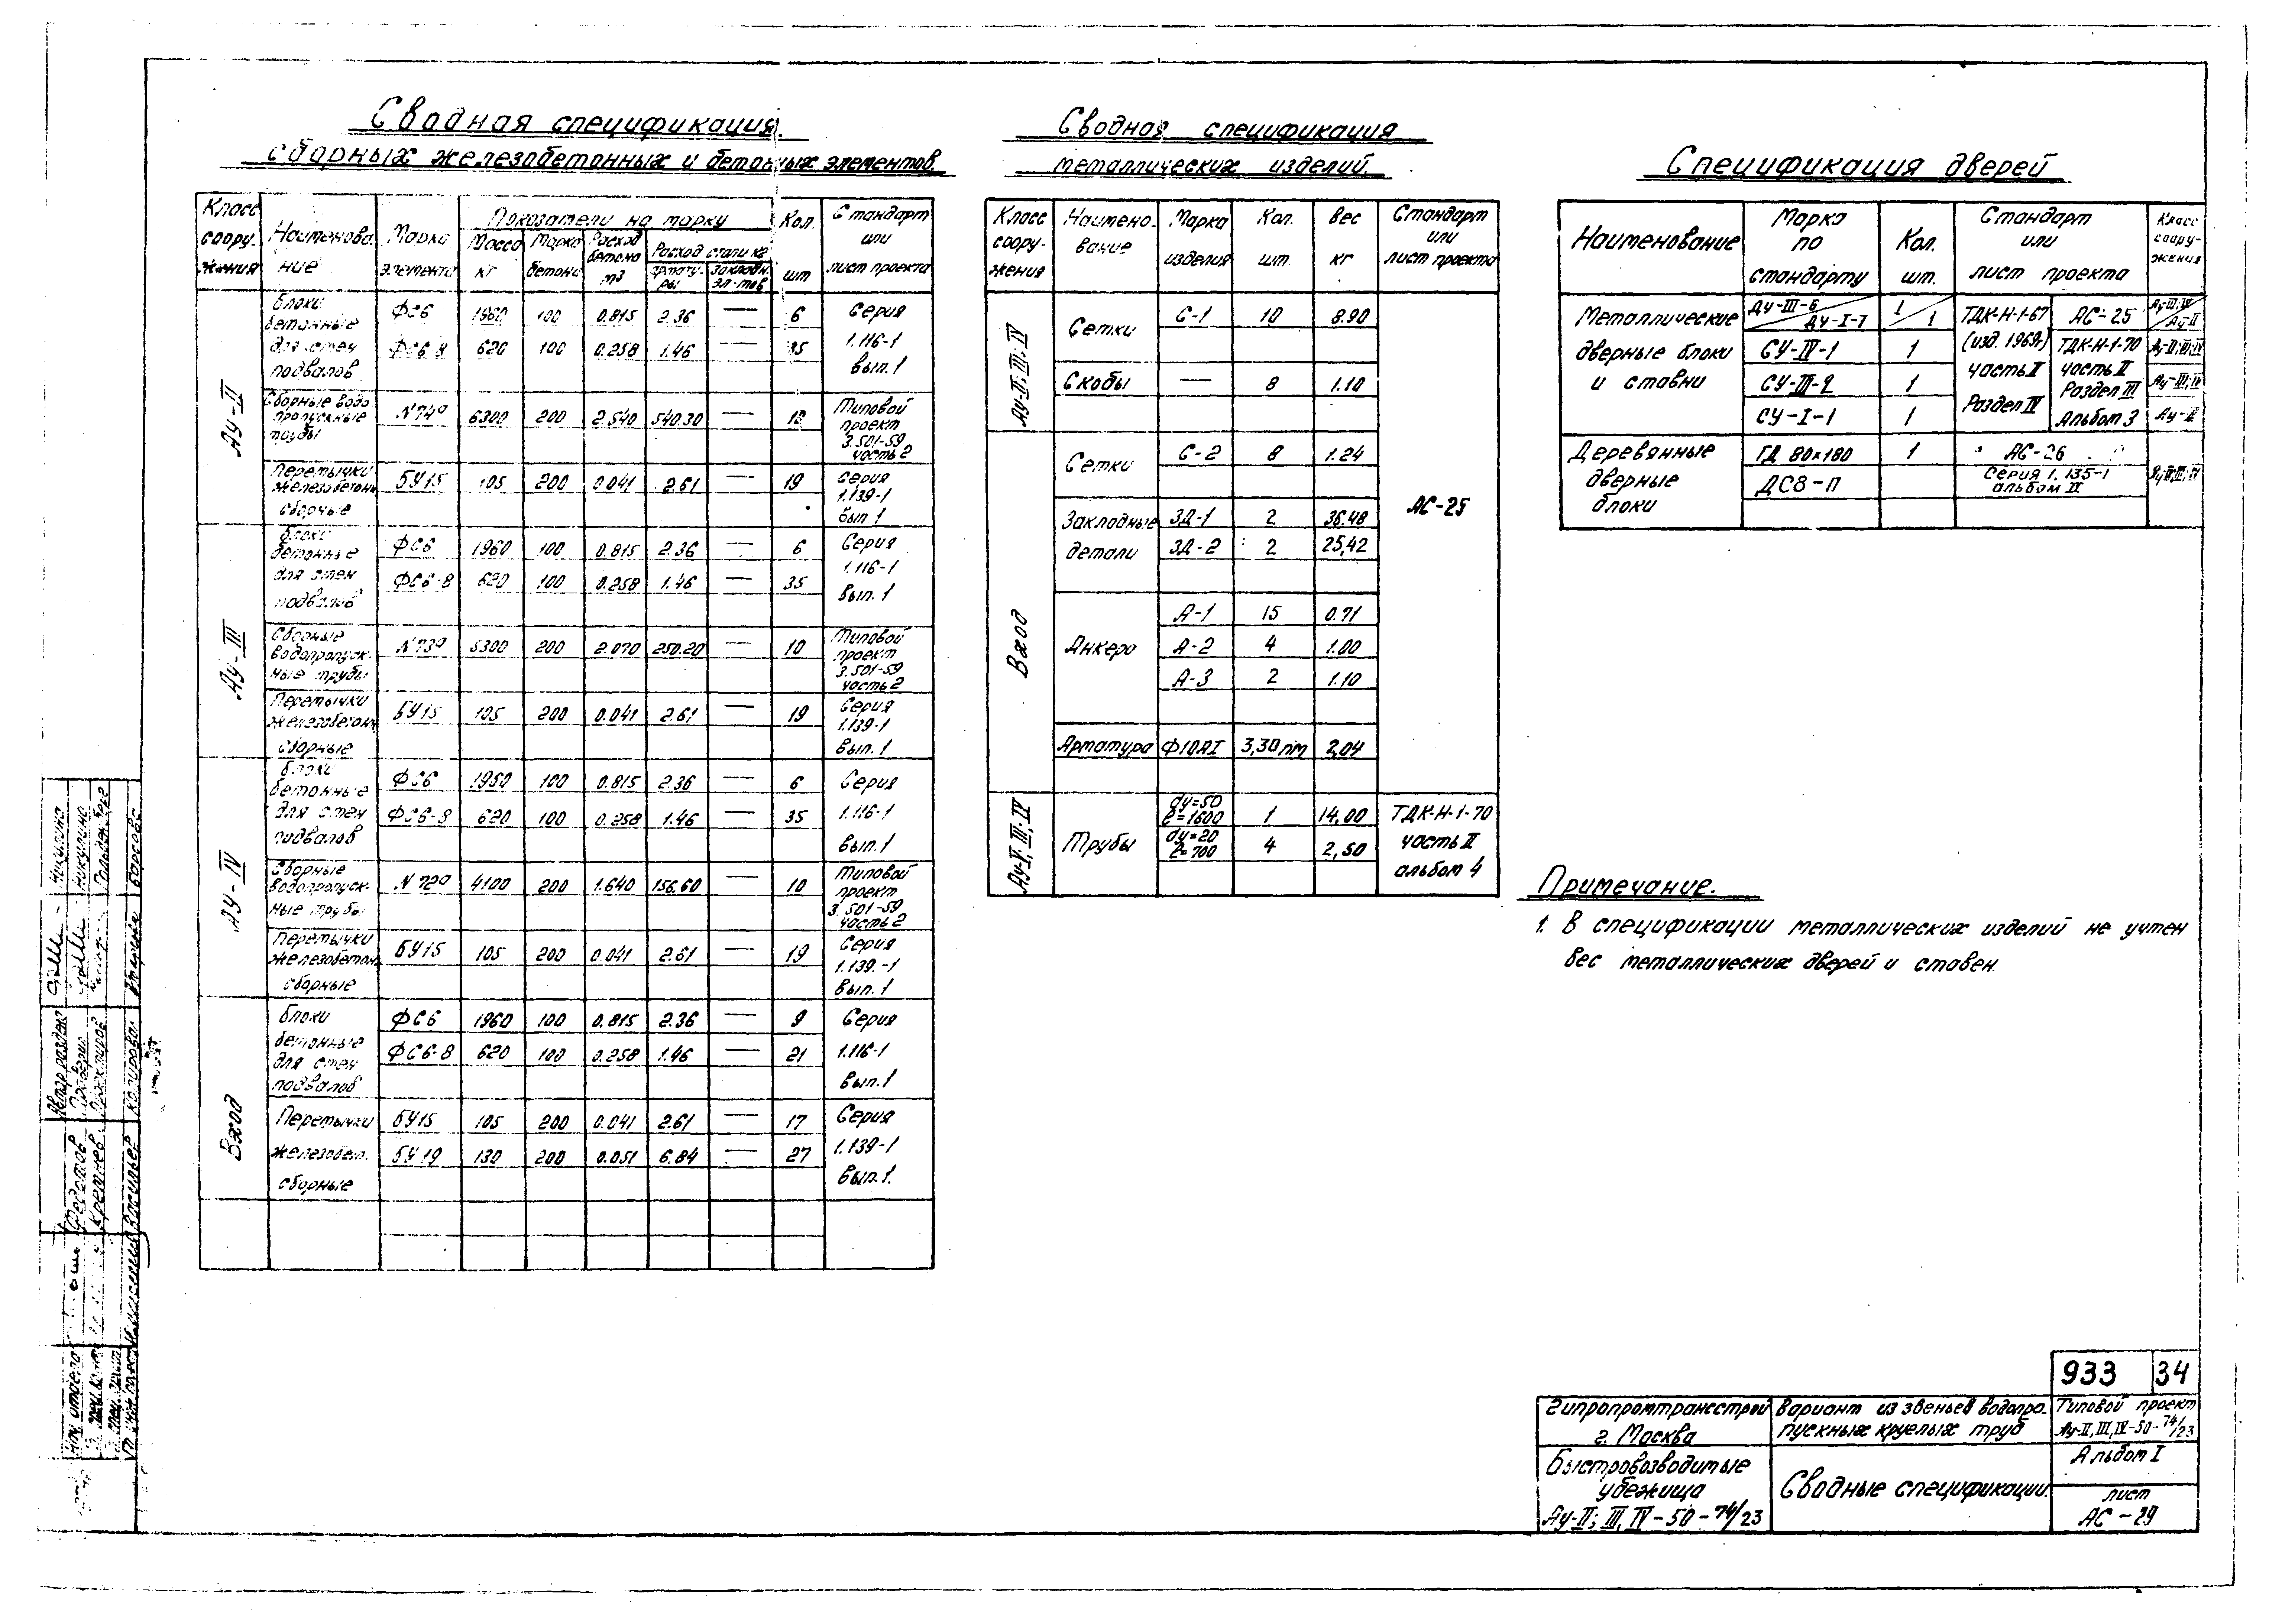 Сводная спецификация
сборных железобетонных и бетонных элементов.
Класс соору-жения | Наименова-ние | Марка элемента | Показатели на марку | Кол. шт | Стандарт или лист проекта
Масса кг | Марка бетона | Расход бетона м3 | Расход стали кг
армату-ры | закладн. эл-тов
Ау-II
Блоки бетонные для стен подвалов | ФС6 | 1960 | 100 | 0.815 | 2.36 | — | 6 | Серия 1.116-1 вып.1
ФС6-8 | 620 | 100 | 0.258 | 1.46 | — | 35
Сборные водопропускные трубы | N74а | 6300 | 200 | 2.540 | 540.30 | — | 13 | Типовой проект 3.501-59 часть 2
Перемычки железобетон. сборные | БУ15 | 105 | 200 | 0.041 | 2.61 | — | 19 | Серия 1.139-1 вып 1
Ау-III
Блоки бетонные для стен подвалов | ФС6 | 1960 | 100 | 0.815 | 2.36 | — | 6 | Серия 1.116-1 вып.1
ФС6-8 | 620 | 100 | 0.258 | 1.46 | — | 35
Сборные водопропуск-ные трубы | N73а | 5300 | 200 | 2.070 | 250.20 | — | 10 | Типовой проект 3.501-59 часть 2
Перемычки железобетон. сборные | БУ15 | 105 | 200 | 0.041 | 2.61 | — | 19 | Серия 1.139-1 вып.1
АУ-IV
Блоки бетонные для стен подвалов | ФС6 | 1960 | 100 | 0.815 | 2.36 | — | 6 | Серия 1.116-1 вып.1
ФС6-8 | 620 | 100 | 0.258 | 1.46 | — | 35
Сборные водопропуск-ные трубы | N72а | 4100 | 200 | 1.640 | 156.60 | — | 10 | Типовой проект 3.501-59 часть 2
Перемычки железобетон. сборные | БУ15 | 105 | 200 | 0.041 | 2.61 | — | 19 | Серия 1.139.-1 вып.1
Вход
Блоки бетонные для стен подвалов | ФС6 | 1960 | 100 | 0.815 | 2.36 | — | 9 | Серия 1.116-1 вып.1
ФС6-8 | 620 | 100 | 0.258 | 1.46 | — | 21
Перемычки железобет. сборные | БУ15 | 105 | 200 | 0.041 | 2.61 | — | 17 | Серия 1.139-1 вып.1.
БУ19 | 130 | 200 | 0.051 | 6.84 | — | 27
Сводная спецификация
металлических изделий.
Класс соору-жения | Наимено-вание | Марка изделия | Кол. шт. | Вес кг | Стандарт или лист проекта
Ау-II; III; IV
Сетки | С-1 | 10 | 8.90
Скобы | — | 8 | 1.10
Вход
Сетки | С-2 | 8 | 1.24
АС-25
Закладные детали | ЗД-1 | 2 | 36.48
ЗД-2 | 2 | 25,42
Анкера | А-1 | 15 | 0.71
А-2 | 4 | 1.00
А-3 | 2 | 1.10
Арматура | Ф10АI | 3,30 пм | 2,04
Трубы | dу=50 ℓ=1600 | 1 | 14,00 | ТДК-Н-1-70 часть II альбом 4
dу=20 ℓ=700 | 4 | 2,50
Спецификация дверей
Наименование | Марка по стандарту | Кол. шт. | Стандарт или лист проекта | Класс соору-жения
Металлические дверные блоки и ставни | ДУ-III-6 / ДУ-I-7 | 1 / 1 | ТДК-Н-1-67 (изд. 1969г) часть I Раздел IV | АС-25 | Ау-III;IV / Ау-II
СУ-IV-1 | 1 | ТДК-Н-1-70 часть II Раздел III Альбом 3 | Ау-II;III;IV
СУ-III-2 | 1 | Ау-III;IV
СУ-I-1 | 1 | Ау-II
Деревянные дверные блоки | ГД 80х180 | 1 | АС-26 | Ау-II;III;IV
ДС8-П | Серия 1.135-1 альбом II
Примечание.
1. В спецификации металлических изделий не учтен
вес металлических дверей и ставен.
933 | 34
Гипропромтрансстрой г. Москва
Вариант из звеньев водопро-
пускных круглых труб
Типовой проект
Ау-II,III,IV-50-74/23
Альбом I
Быстровозводимые
убежища
Ау-II; III, IV-50-74/23
Сводные спецификации.
лист
АС-29
Никулина
Никулина
Проверил
Копировал
Федотов
Кретнев
Васильев
Нач отдела